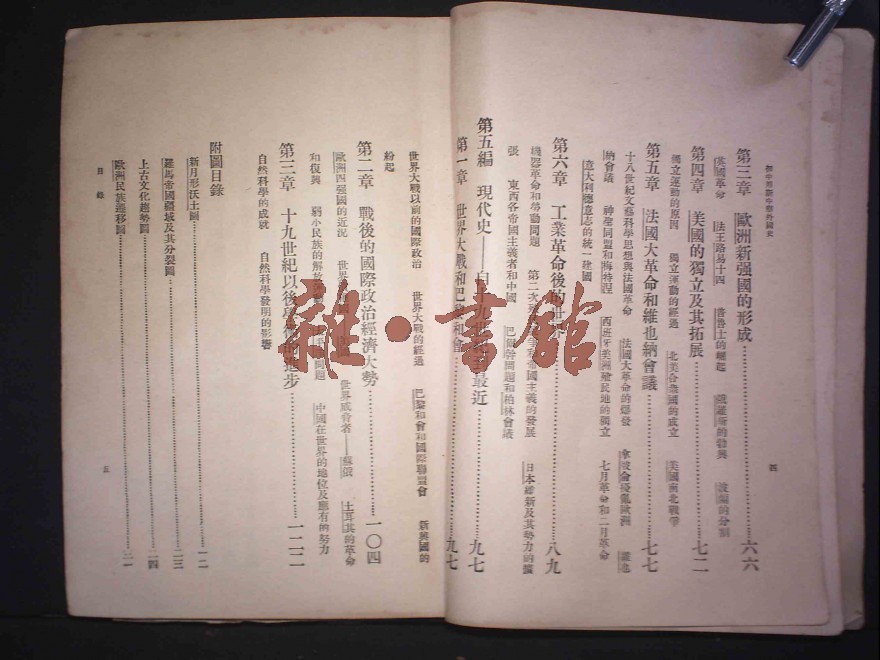 初中用新中華外國史
第三章　歐洲新强國的形成………六六
英國革命　法王路易十四　普魯士的崛起　俄羅斯的發興　波蘭的分割
第四章　美國的獨立及其拓展………七二
獨立運動的原因　獨立運動的經過　北美合衆國的成立　美國南北戰爭
第五章　法國大革命和維也納會議………七七
十八世紀文藝科學思想與法國革命　法國大革命的爆發　拿破侖擾亂歐洲　維也
納會議　神聖同盟和梅特涅　西班牙美洲殖民地的獨立　七月革命和二月革命
意大利德意志的統一建國
第六章　工業革命後的世界………八九
機器革命和勞動問題　第二次　帝國主義的發展
張　東西各帝國主義者和中國　巴爾幹問題和柏林會議　日本維新及其勢力的擴
第五編　現代史——自十九世紀　最近………九七
第一章　世界大戰和巴黎和會………九七
四
世界大戰以前的國際政治　世界大戰的經過　巴黎和會和國際聯盟會　新興國的
紛起
第二章　戰後的國際政治經濟大勢………一〇四
歐洲四强國的近況　世界　世界威脅者——蘇俄　土耳其的革命
和復興　弱小民族的解放　問題　中國在世界的地位及應有的努力
第三章　十九世紀以後學術的進步………一一二
自然科學的成就　自然科學發明的影響
附圖目錄
新月形沃土圖………一二
羅馬帝國疆域及其分裂圖………二三
上古文化趨勢圖………二四
歐洲民族遷移圖………三一
目錄
五
雅·書館